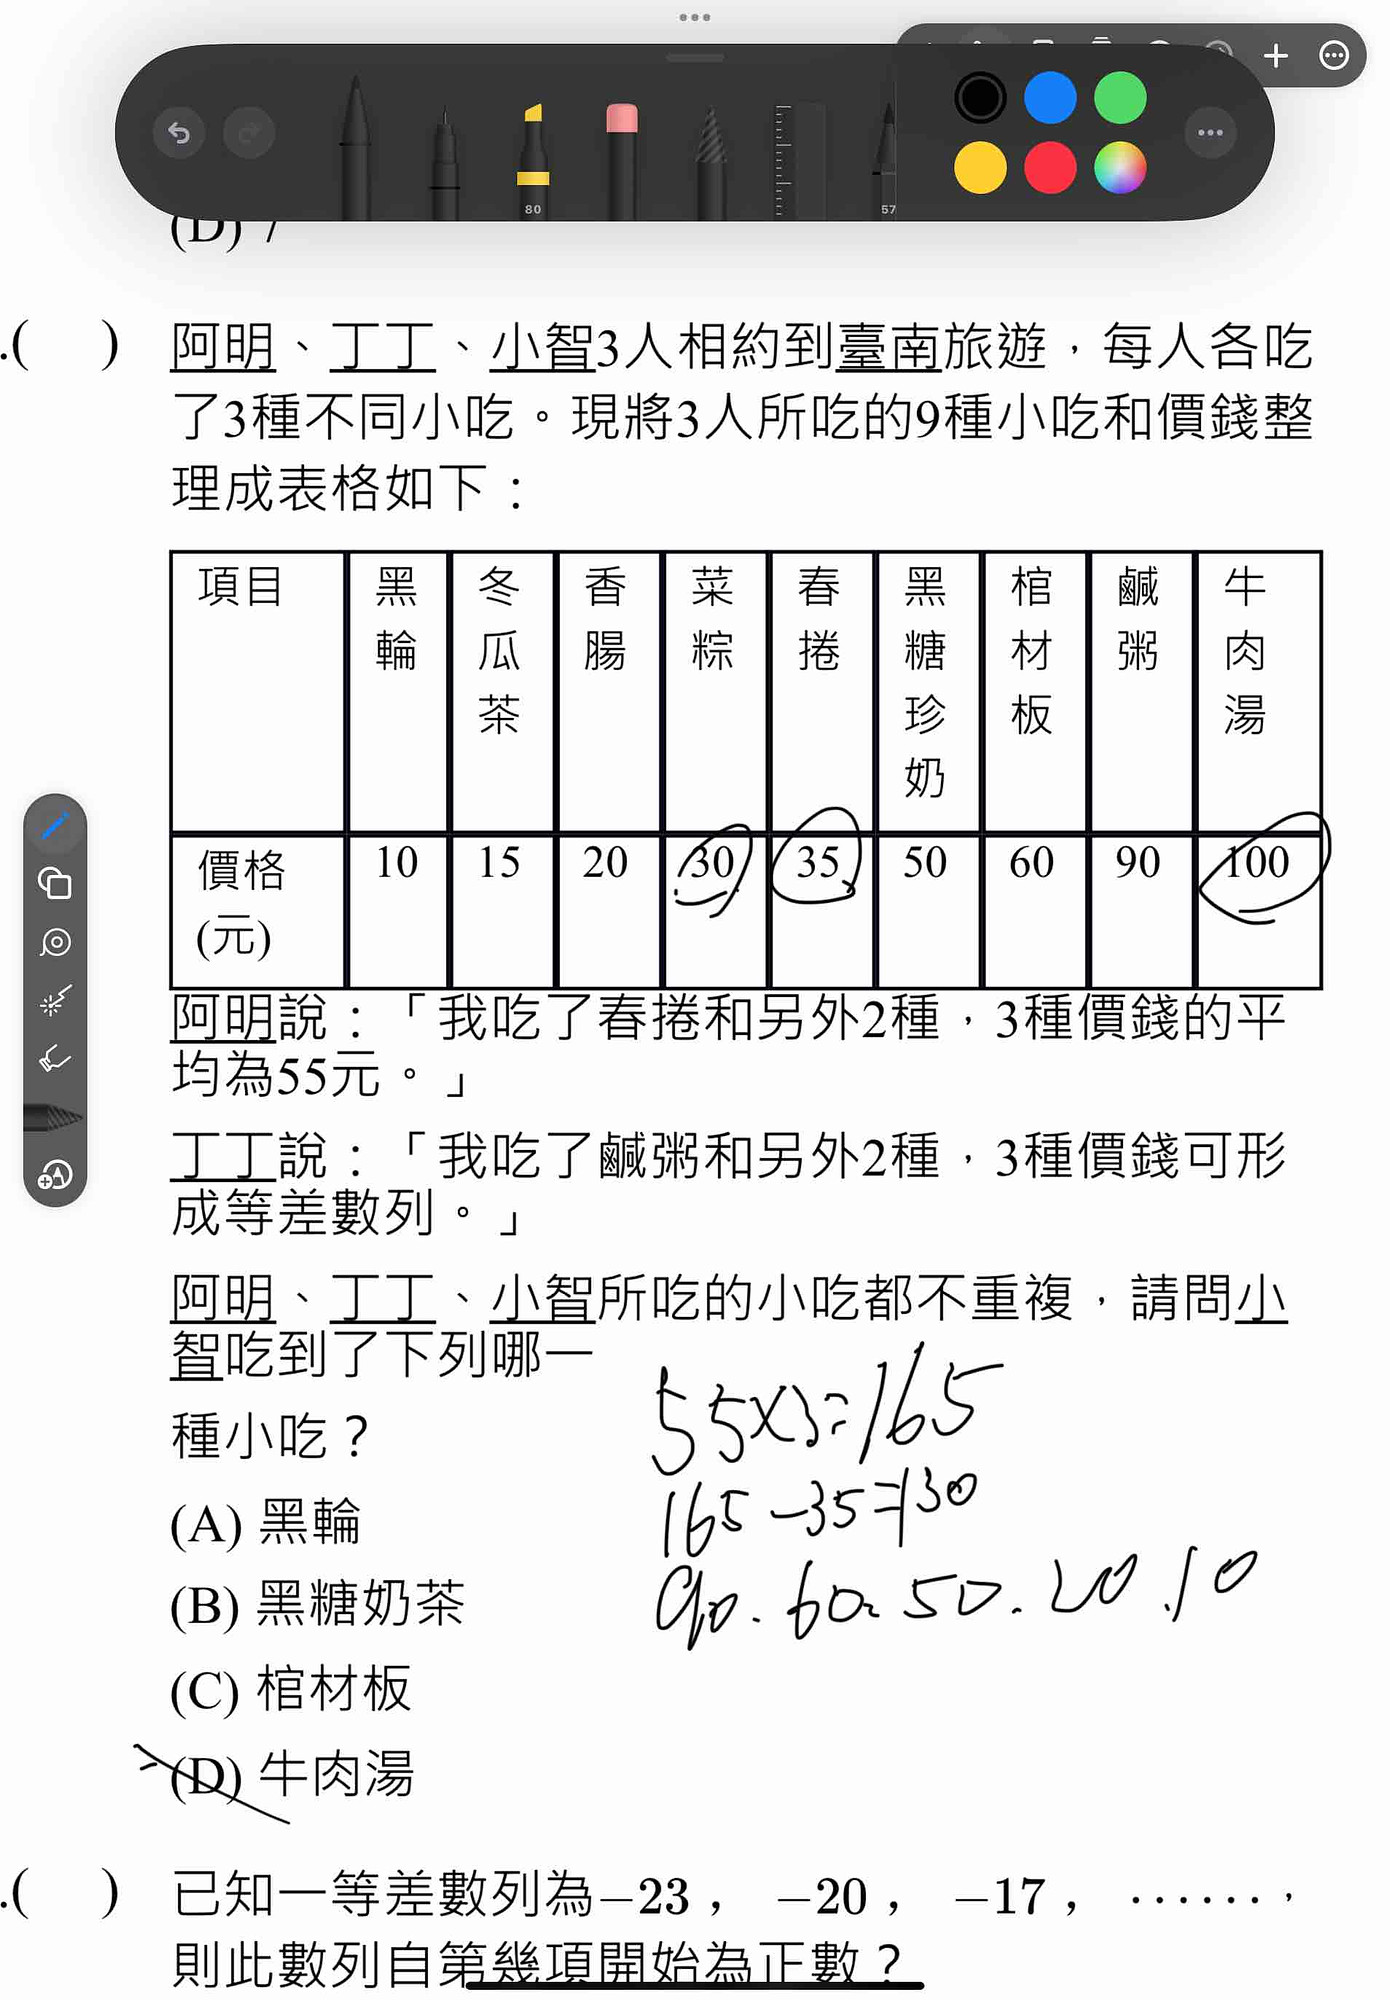 80
57
(D) 7
.( ) 阿明、丁丁、小智3人相約到臺南旅遊，每人各吃
了3種不同小吃。現將3人所吃的9種小吃和價錢整
理成表格如下：
項目 黑輪 冬瓜茶 香腸 菜粽 春捲 黑糖珍奶 棺材板 鹹粥 牛肉湯
價格(元) 10 15 20 30 35 50 60 90 100
阿明說：「我吃了春捲和另外2種，3種價錢的平
均為55元。」
丁丁說：「我吃了鹹粥和另外2種，3種價錢可形
成等差數列。」
阿明、丁丁、小智所吃的小吃都不重複，請問小
智吃到了下列哪一
種小吃？
55×3=165
165-35=130
90.60.50.20.10
(A) 黑輪
(B) 黑糖奶茶
(C) 棺材板
(D) 牛肉湯
.( ) 已知一等差數列為−23， −20， −17， ······，
則此數列自第幾項開始為正數？